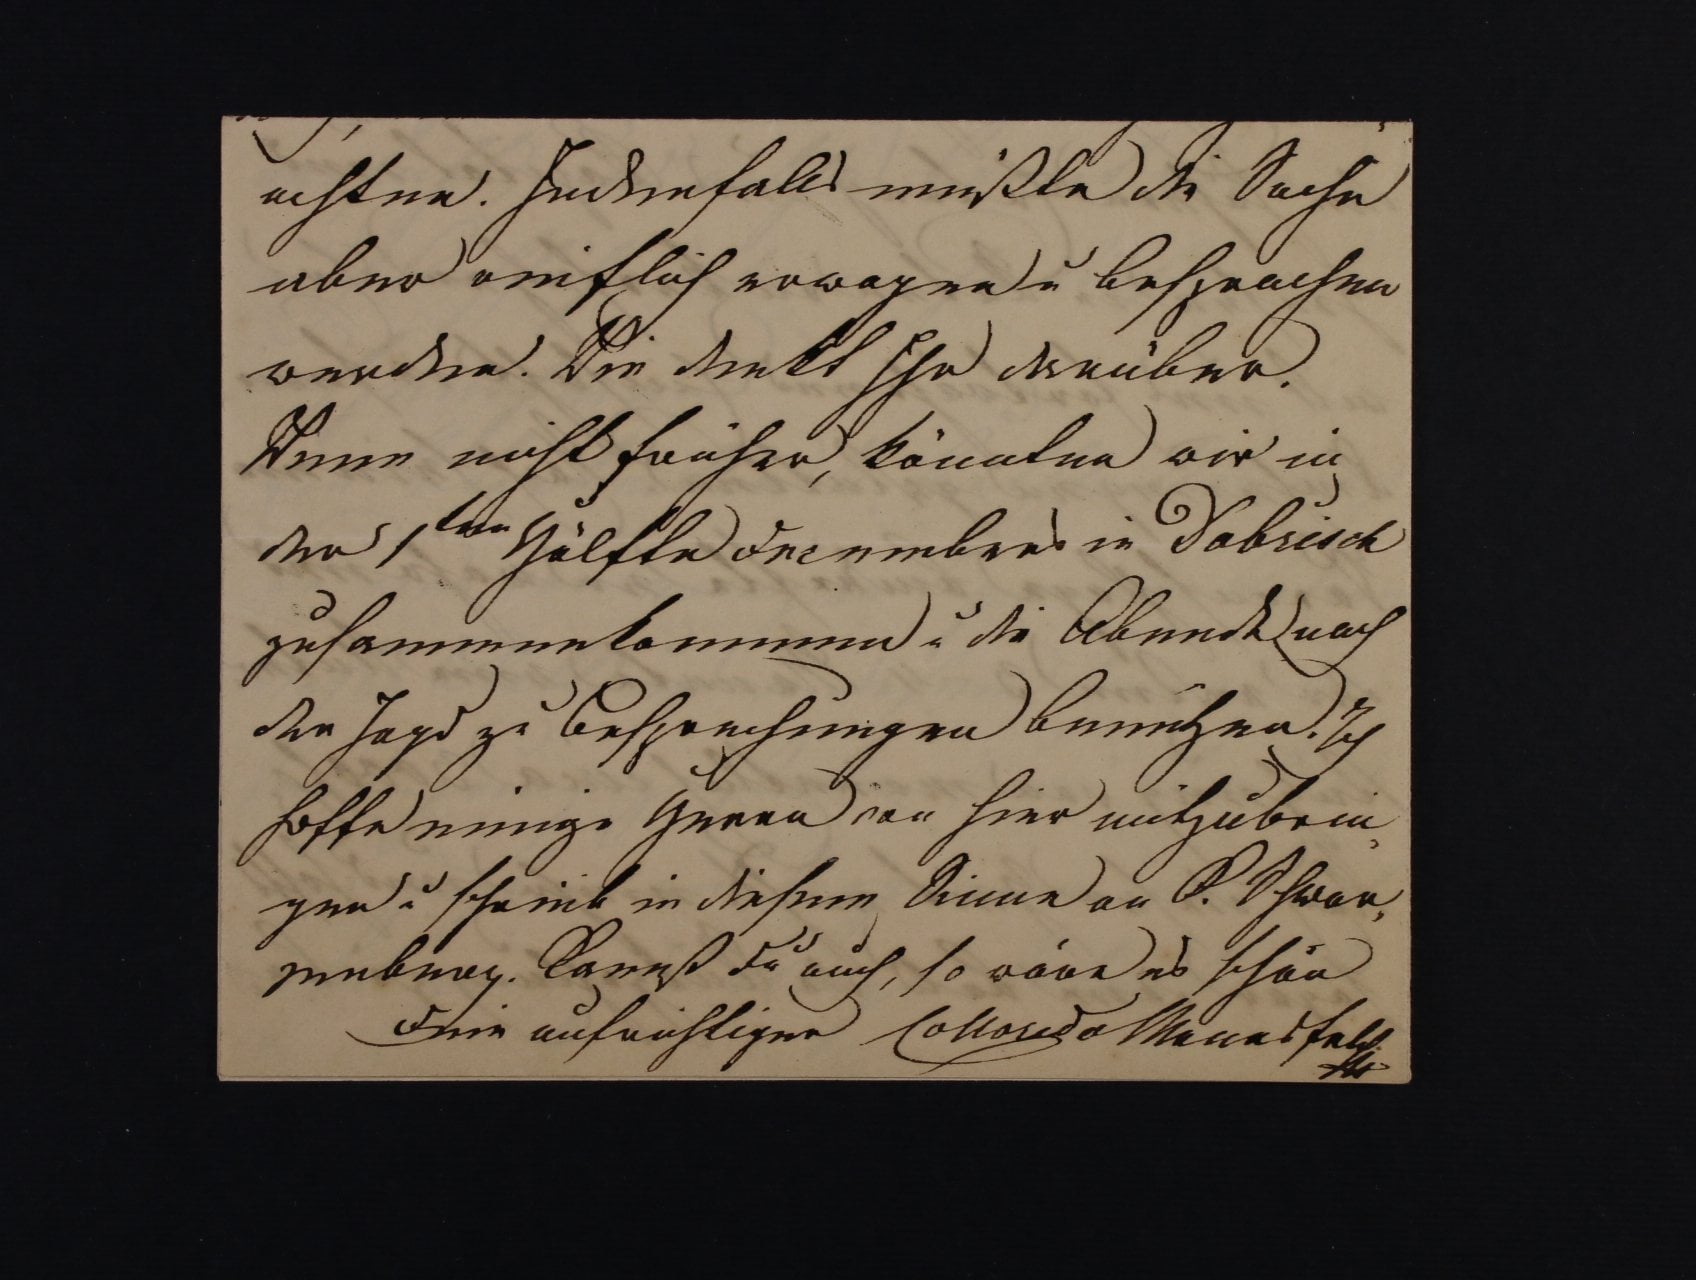 achten. Jedenfalls müßte die Sache
aber reiflich erwogen u besprochen
werden. Wie denkt Ihr darüber.
Wenn nicht früher, könnten wir in
der 1ten Hälfte Dezembers in Dobrisch
zusammenkommen u die Abende nach
der Jagd zu Besprechungen benützen. Ich
hoffe einige Herren von hier mitzubrin„
gen u schrieb in diesem Sinne an C. Schwar„
zenberg. Kannst Du auch, so wäre es schön
Dein aufrichtiger Colloredo Mannsfeld